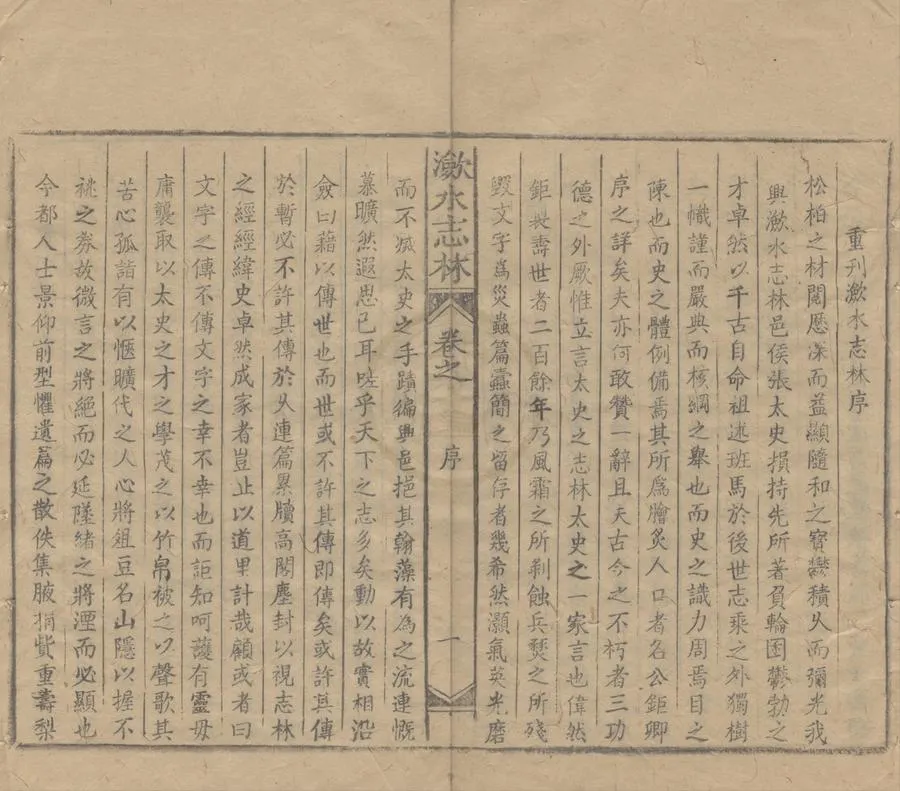 重刋潄水志林序
松柏之材閱歷深而益顯隨和之寶鬱積乆而彌光我
興潄水志林邑侯張太史損持先所著負輪囷鬱勃之
才卓然以千古自命祖述班馬於後世志乘之外獨樹
一幟謹而嚴典而核綱之舉也而史之識力周焉目之
陳也而史之體例備焉其所爲膾炙人口者名公鉅卿
序之詳矣夫亦何敢贊一辭且天古今之不朽者三功
德之外厥惟立言太史之志林太史之一家言也偉然
鉅裁壽世者二百餘年乃風霜之所剥蝕兵燹之所殘
毀文字爲災蟲篇蠹簡之留存者幾希然灝氣英光磨
潄水志林 卷之 序 一
而不滅太史之手蹟徧興邑挹其翰藻有為之流連慨
慕曠然遐思已耳嗟乎天下之志多矣動以故實相沿
僉曰藉以傳世也而世或不許其傳即傳矣或許其傳
於暫必不許其傳於乆連篇累牘高閣塵封以視志林
之經經緯史卓然成家者豈止以道里計哉顧或者曰
文字之傳不傳文字之幸不幸也而詎知呵護有靈毋
庸襲取以太史之才之學茂之以竹帛被之以聲歌其
苦心孤詣有以愜曠代之人心將俎豆名山隱以握不
祧之券故微言之將絕而必延墜緒之將湮而必顯也
今都人士景仰前型懼遺篇之散佚集腋捐貲重壽梨